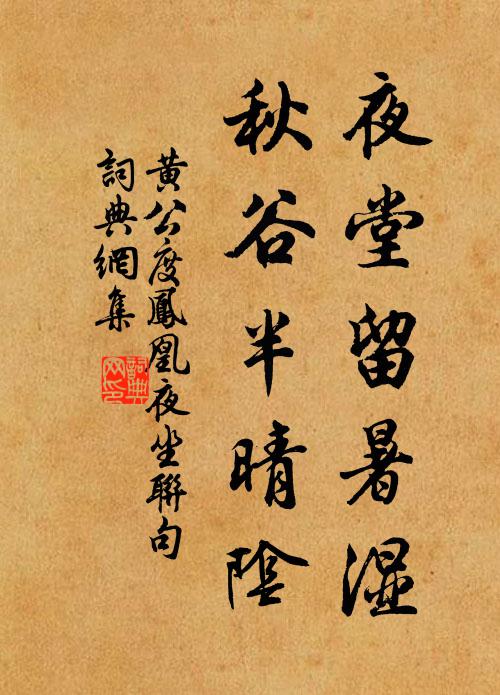 夜堂留暑濕
秋谷半晴陰
黃公度鳳凰夜坐聯句
詞典網集
詞典
网印